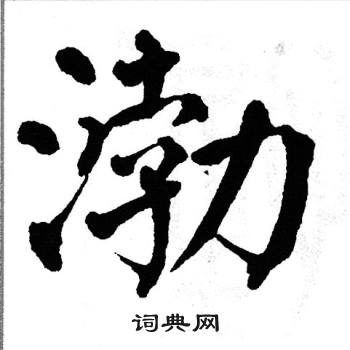 渤
词典网